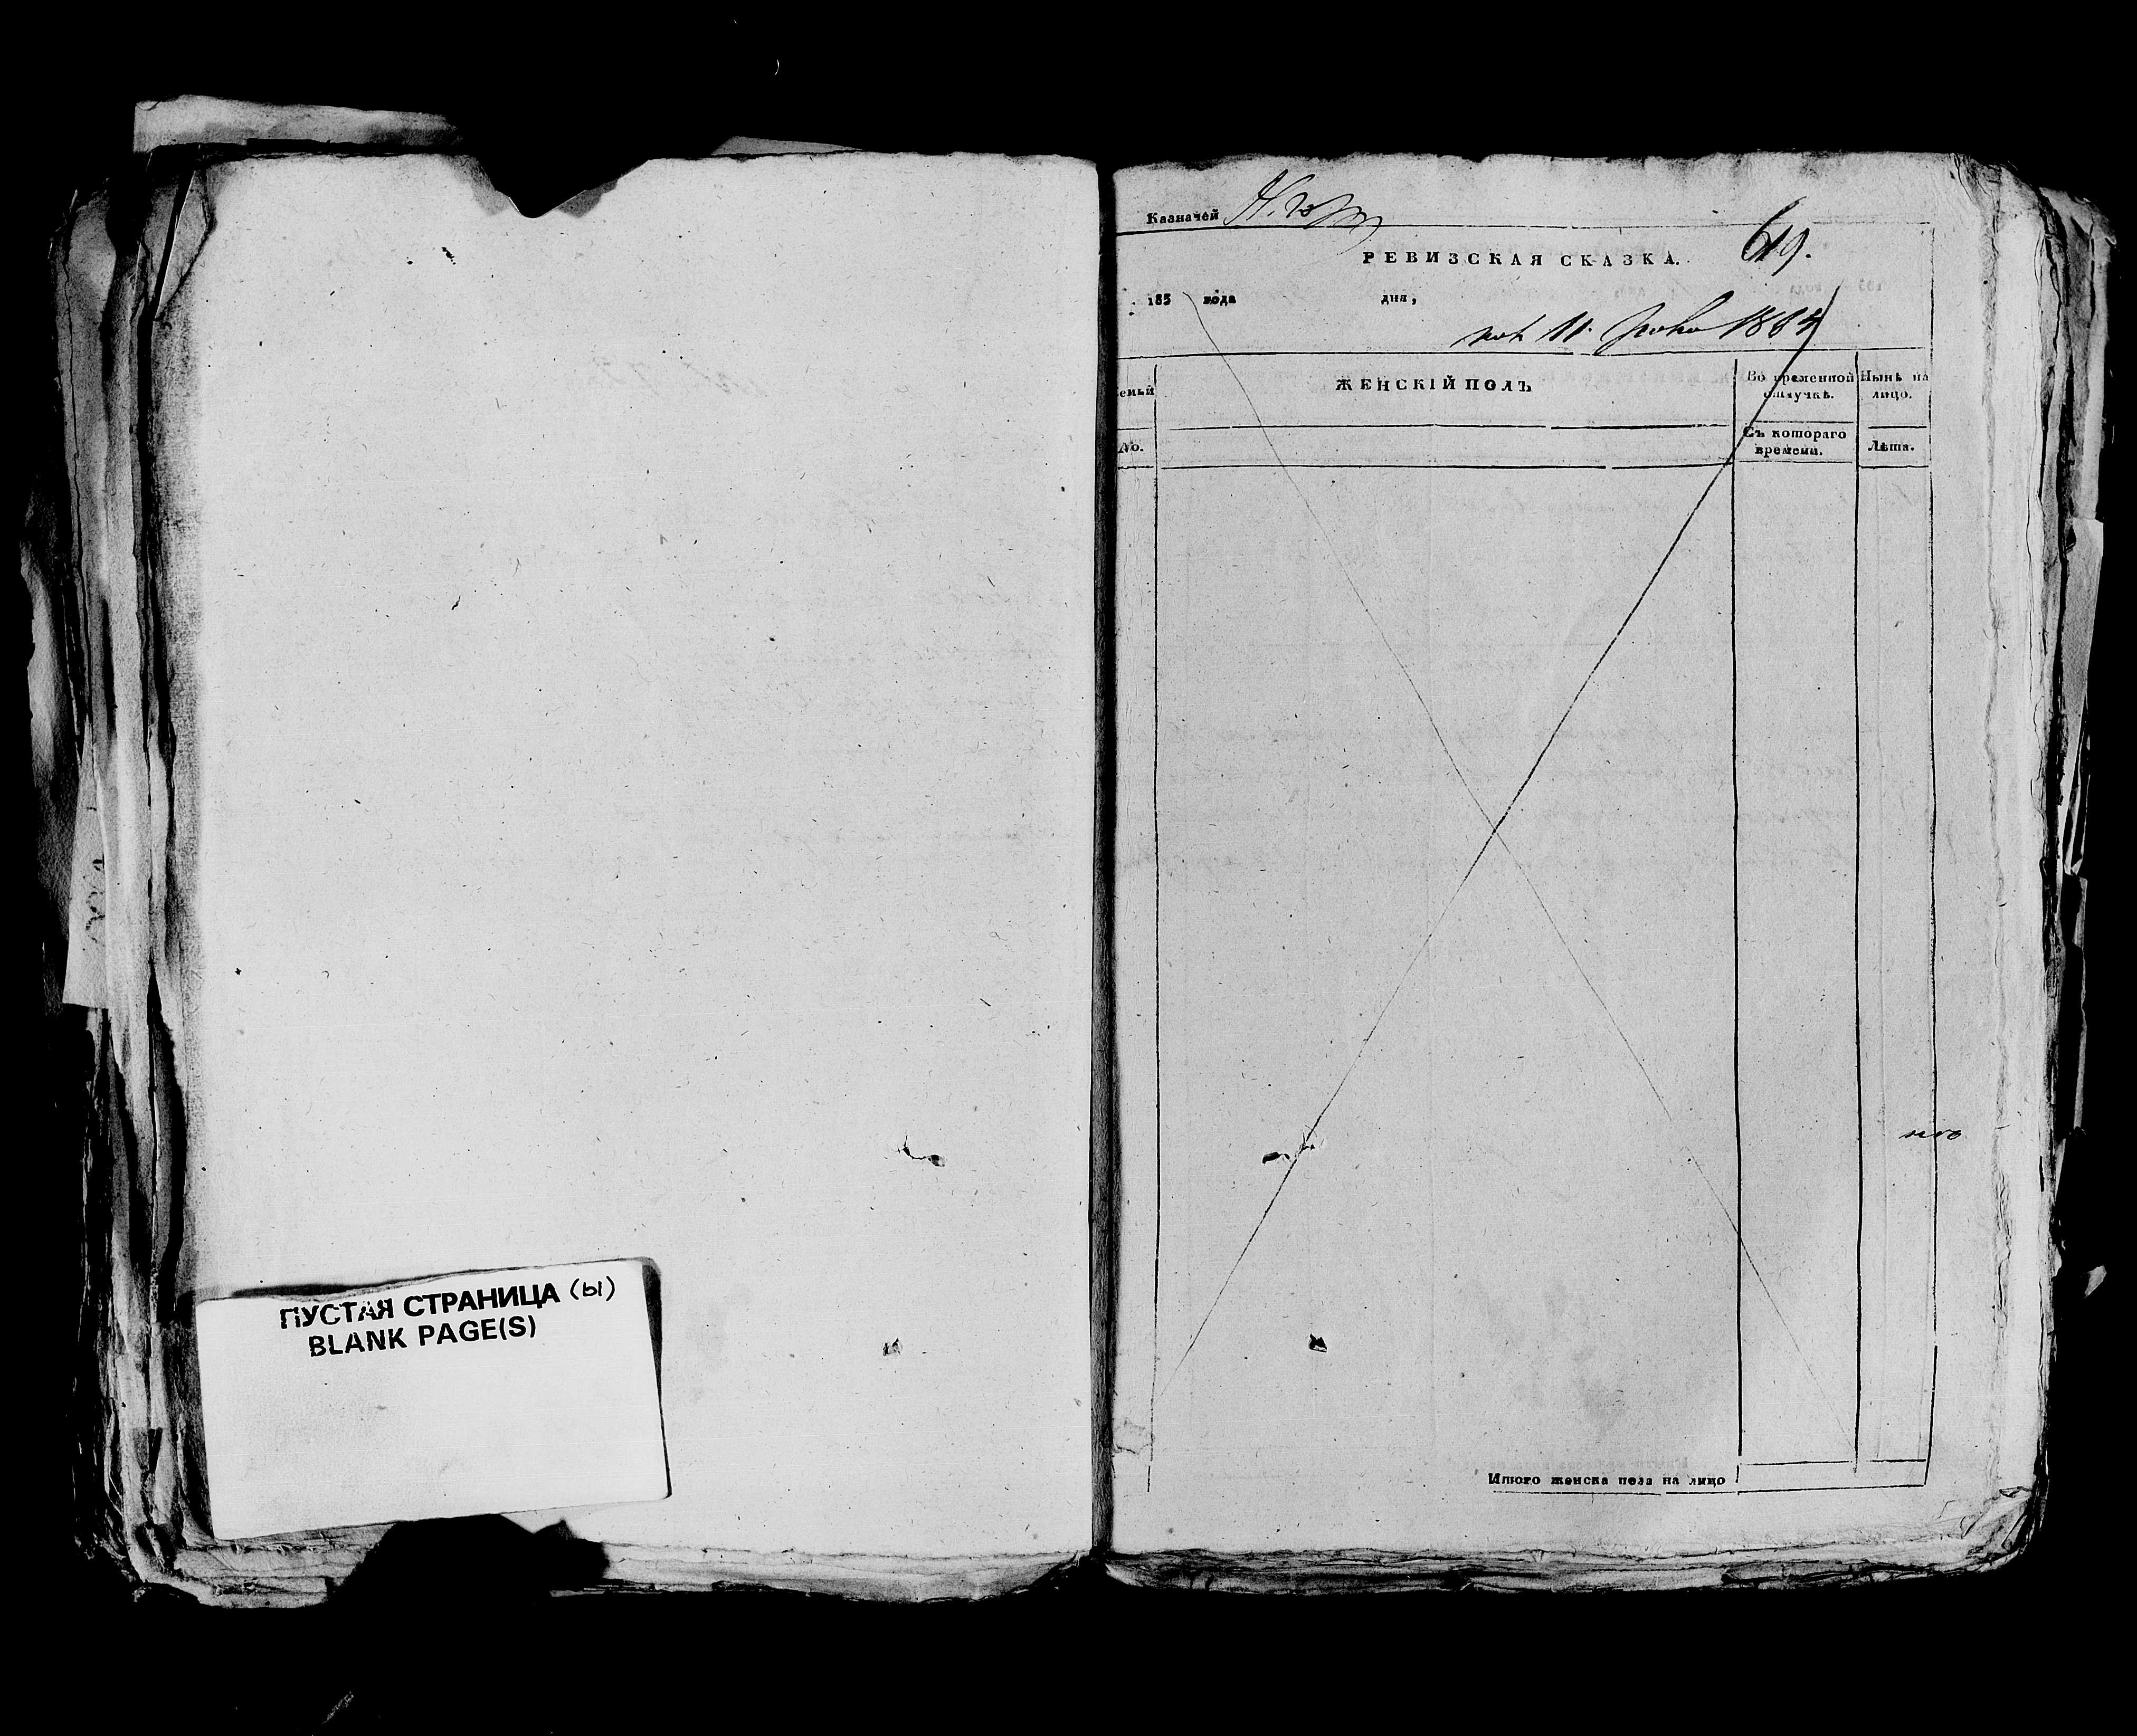 ПУСТАЯ СТРАНИЦА (ы)
BLANK PAGE(S)
Казначей
619.
РЕВИЗСКАЯ СКАЗКА.
185 года дня,
11.
семьи
ЖЕНСКІЙ ПОЛЪ
Во временной отлучкѣ.
Нынѣ на лицо.
No.
Съ котораго времени.
Лѣта.
Итого женска пола на лицо